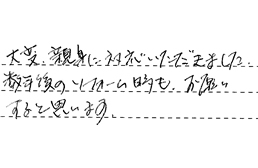 大変、親身に対応いただきました。
数年後のリフォーム時も、お願い
すると思います。